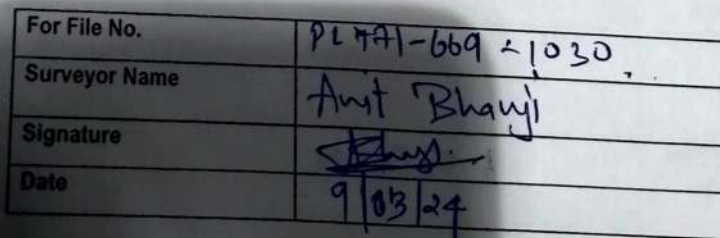 For File No. PL771-669-1030
Surveyor Name Amit Bhanji
Signature
Date 9/03/24